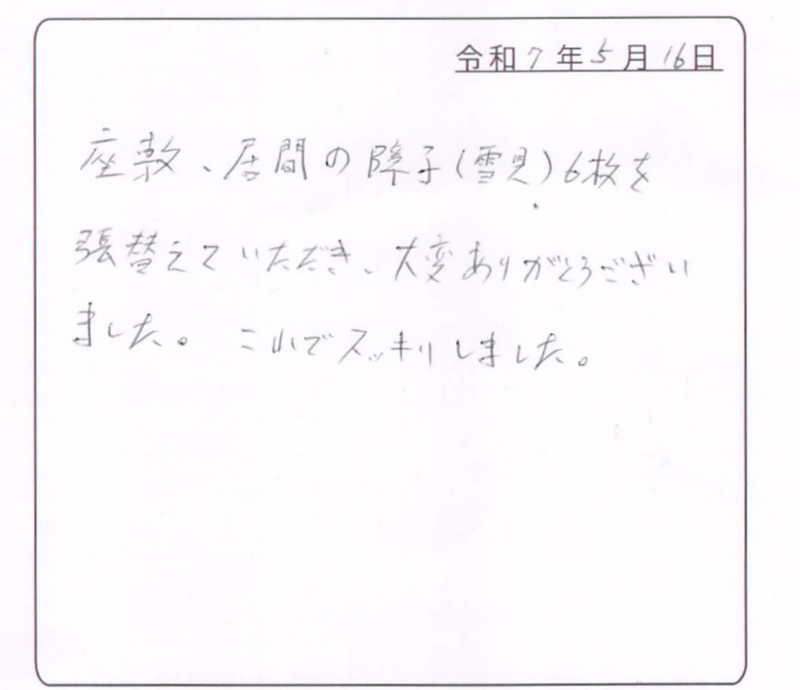 令和7年5月16日
座敷、居間の障子(雪見)6枚を
張替えていただき、大変ありがとうござい
ました。 これでスッキリしました。